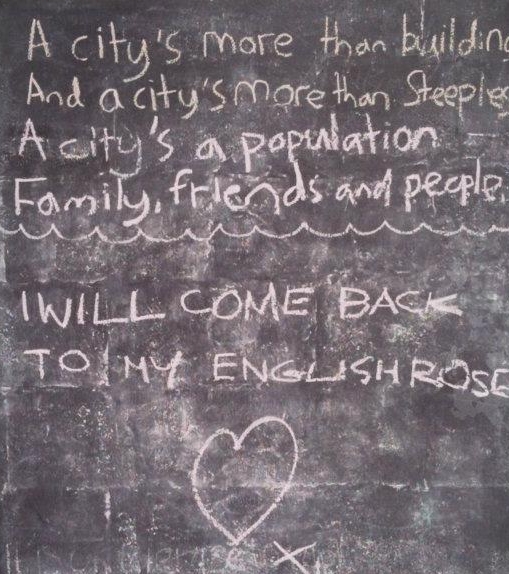 A city's more than building
And a city's more than Steeples
A city's a population —
Family, friends and people.
I WILL COME BACK
TO MY ENGLISH ROSE
X